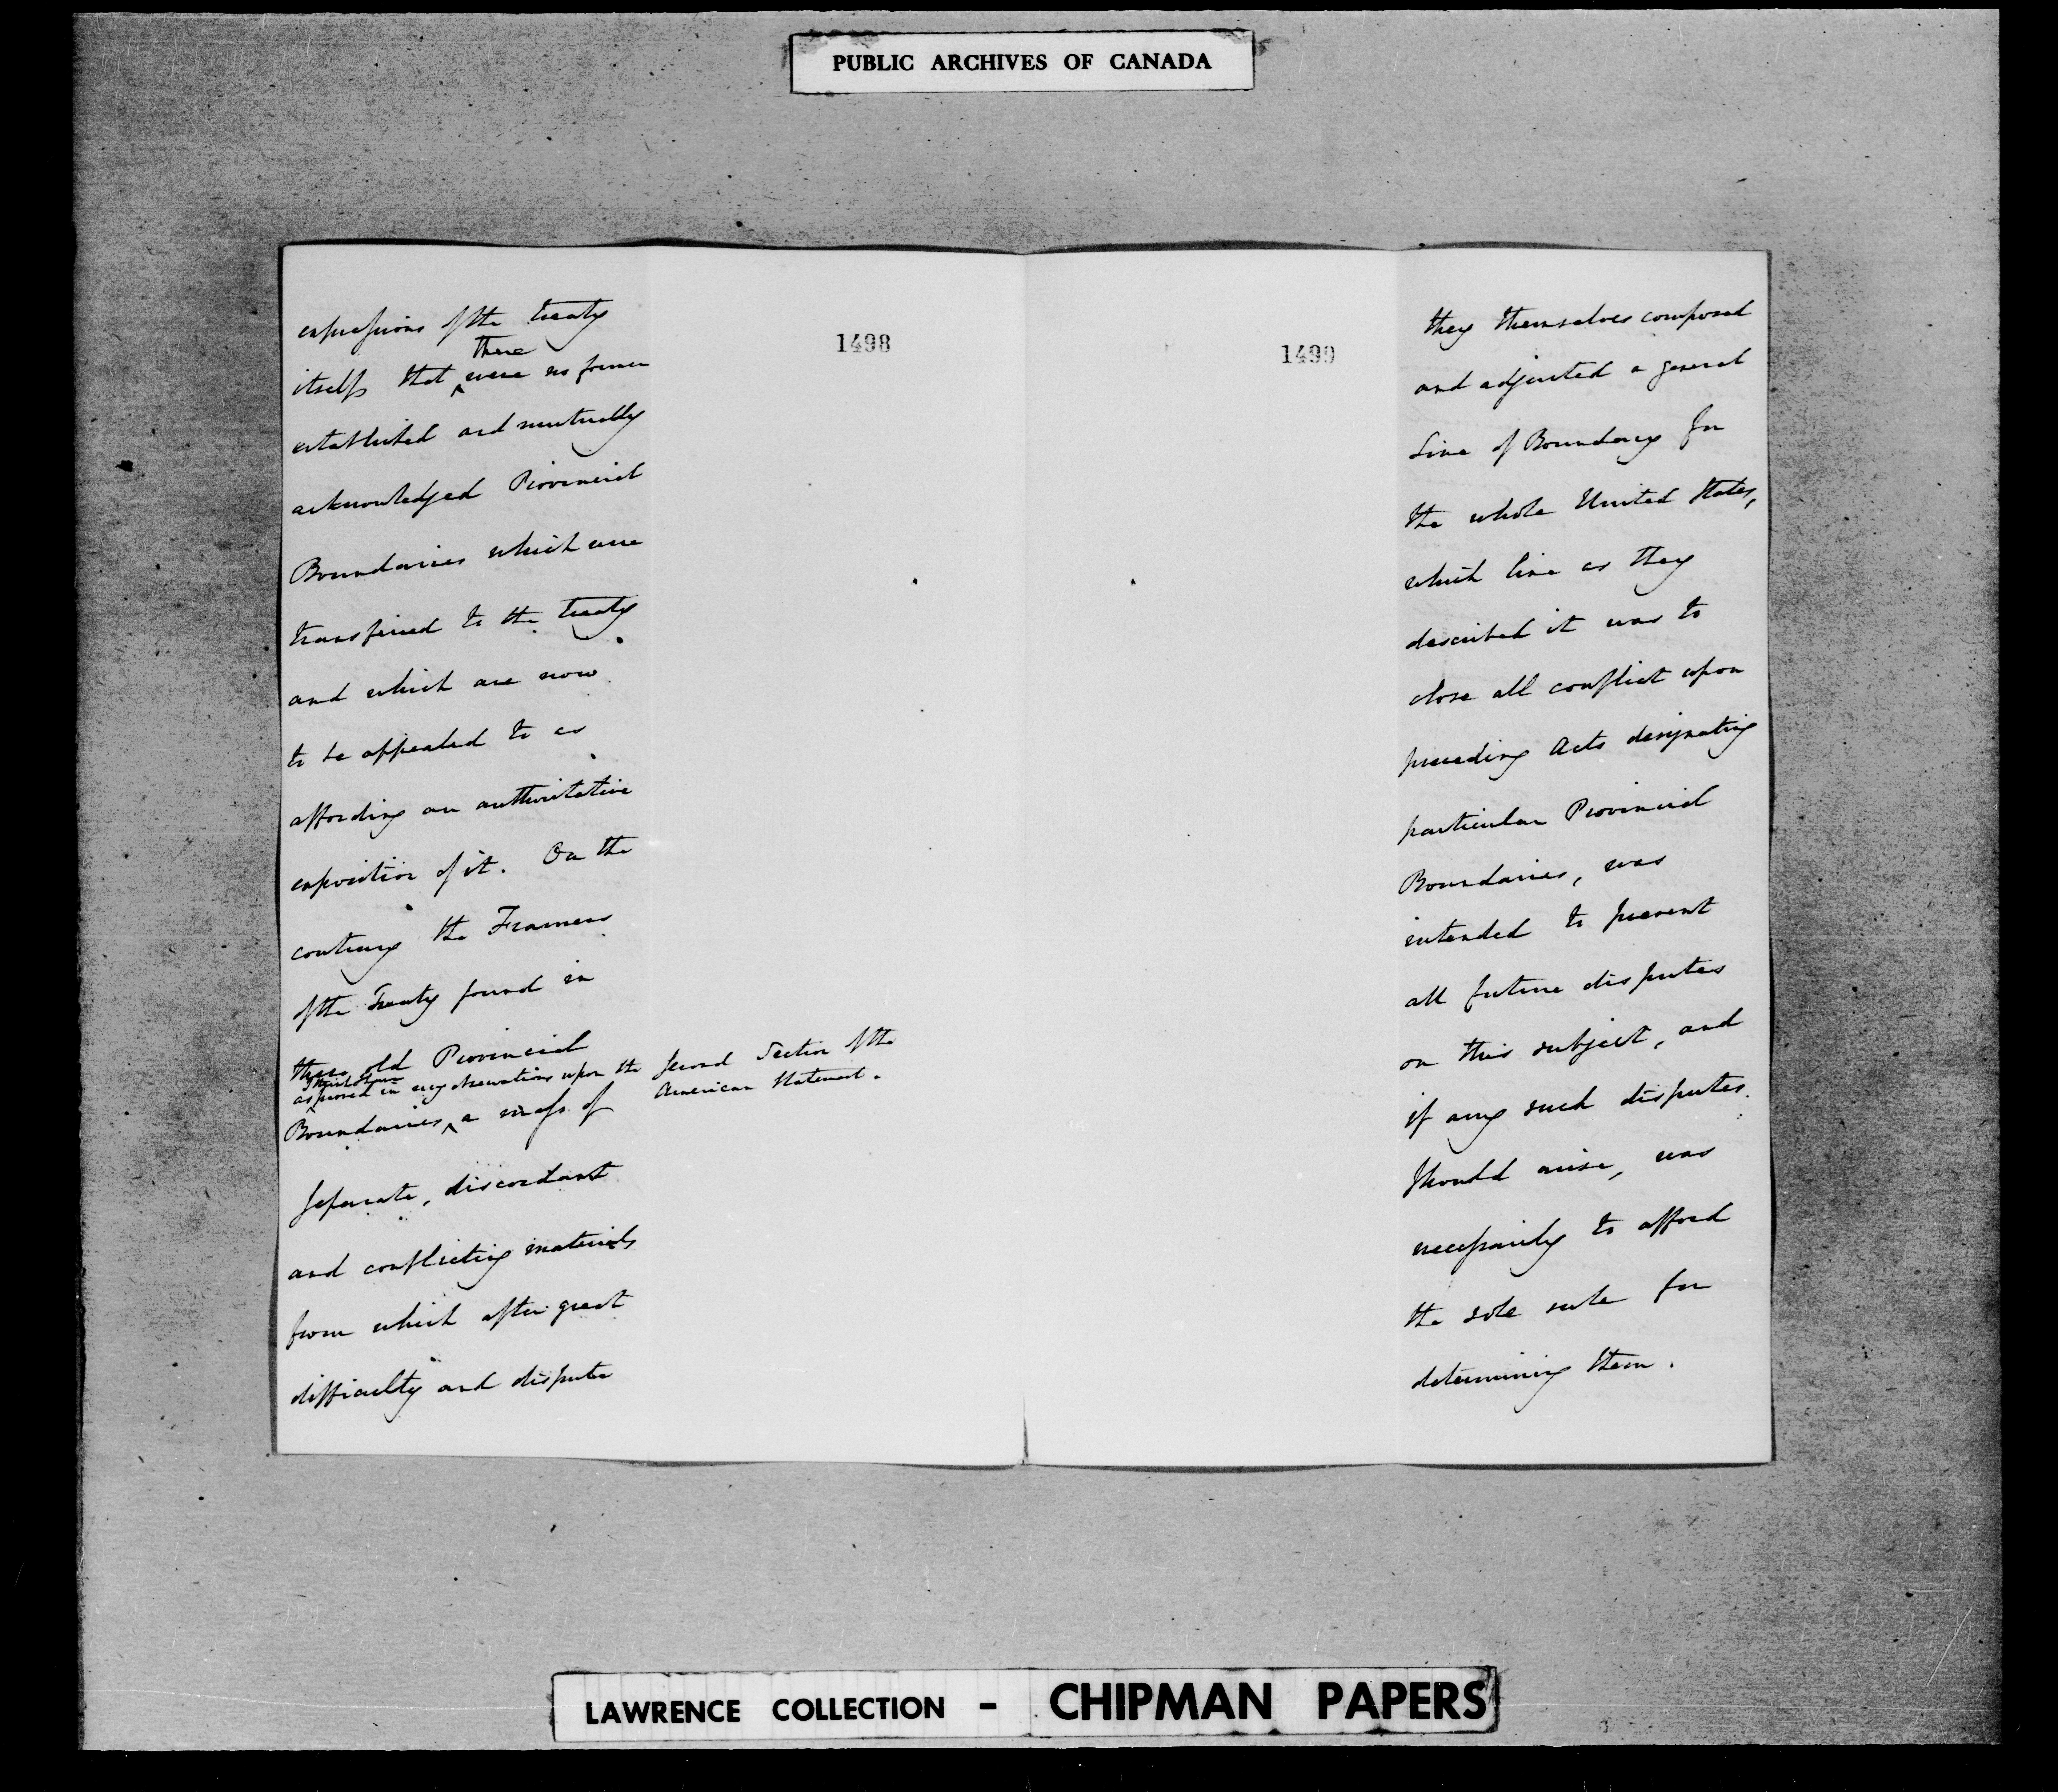 PUBLIC ARCHIVES OF CANADA
1498
expressions of the treaty
there
itself that ^ were no former
established and mutually
acknowledged Provincial
Boundaries which were
transferred to the treaty
and which are now
to be appealed to as
affording an authoritative
exposition of it. On the
contrary the Framers
of the Treaty found in
these old Provincial
as proved in my observations upon the Second Section of the
American Statement.
Boundaries ^ a mass of
separate, discordant
and conflicting materials
from which after great
difficulty and dispute
1499
they themselves composed
and adjusted a general
Line of Boundary for
the whole United States,
which line as they
described it was to
close all conflict upon
preceding Acts designating
particular Provincial
Boundaries, was
intended to prevent
all future disputes
on this subject, and
if any such disputes
should arise, was
necessarily to afford
the sole rule for
determining them.
LAWRENCE COLLECTION - CHIPMAN PAPERS